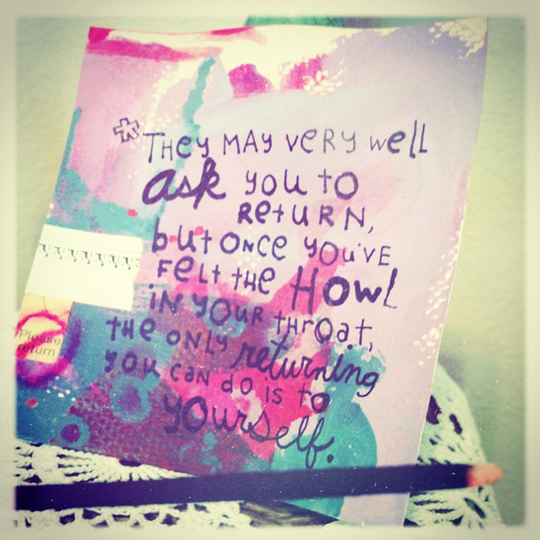 * They may very well
ask you to
Return,
but once you've
felt the Howl
in your throat,
the only returning
you can do is to
yourself.
Please
return